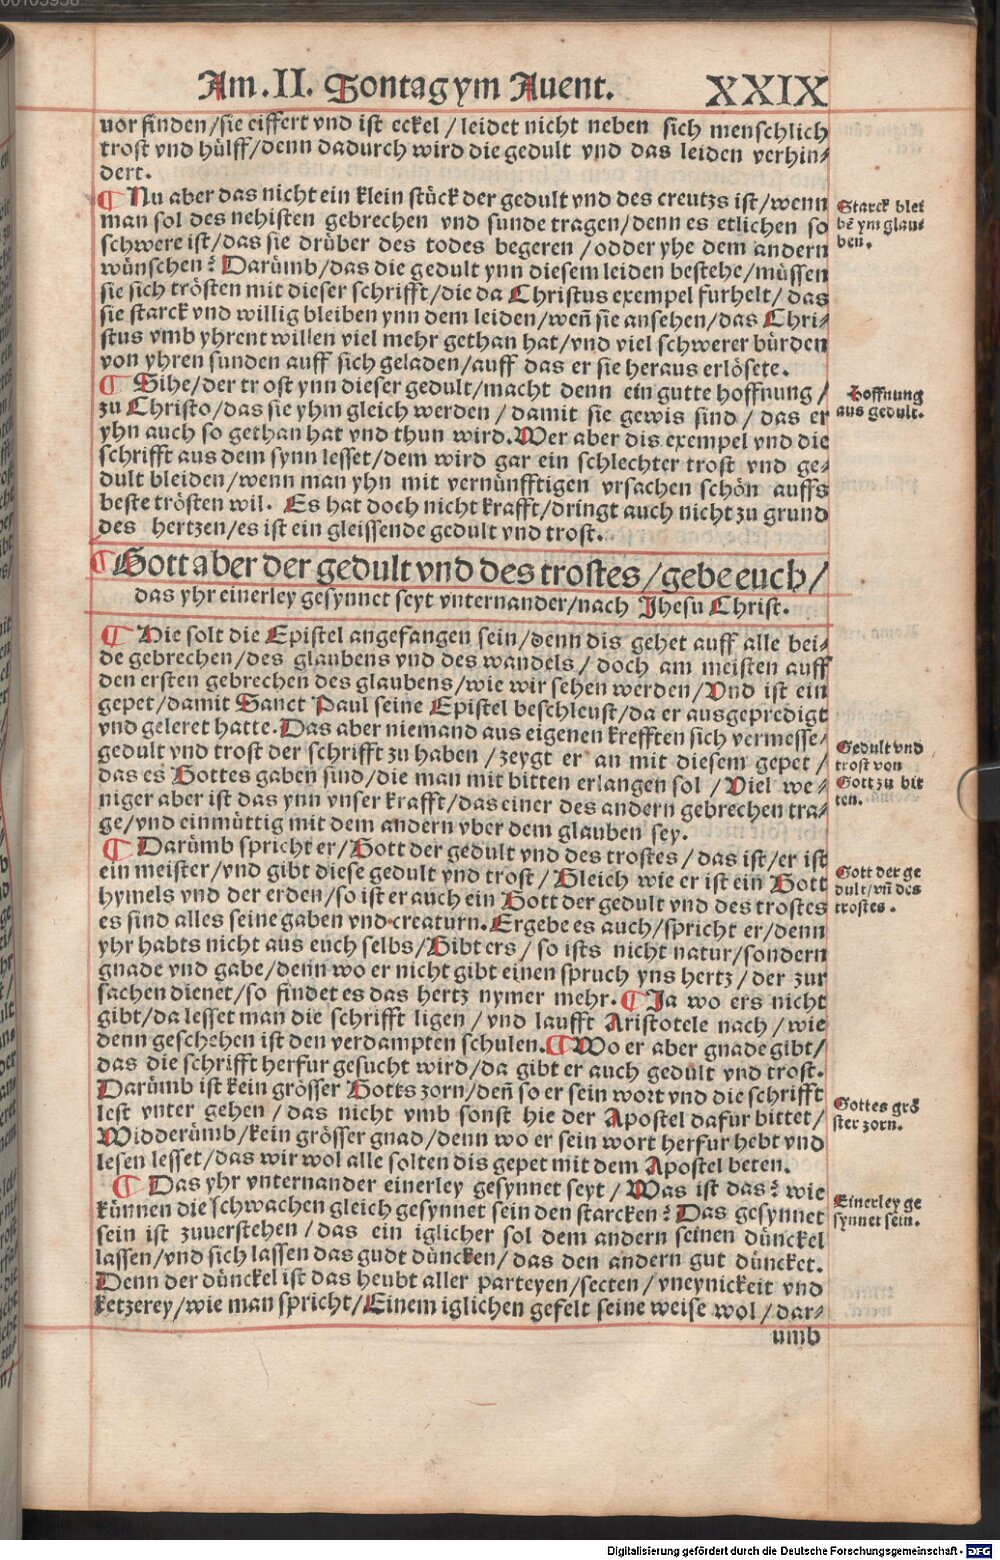 Am. II. Sontag ym Auent. XXIX
vor finden/sie eiffert vnd ist eckel/leidet nicht neben sich menschlich
trost vnd hülff/denn dadurch wird die gedult vnd das leiden verhin-
dert.
¶ Nu aber das nicht ein klein stück der gedult vnd des creutzs ist/wenn
man sol des nehisten gebrechen vnd sunde tragen/denn es etlichen so
schwere ist/das sie drüber des todes begeren/odder yhe dem andern
wünschen? Darümb/das die gedult ynn diesem leiden bestehe/müssen
sie sich trösten mit dieser schrifft/die da Christus exempel furhelt/das
sie starck vnd willig bleiben ynn dem leiden/weñ sie ansehen/das Chri-
stus vmb yhrent willen viel mehr gethan hat/vnd viel schwerer bürden
von yhren sunden auff sich geladen/auff das er sie heraus erlösete.
Starck blei
bē ym glau-
ben.
¶ Sihe/der trost ynn dieser gedult/macht denn ein gutte hoffnung/
zu Christo/das sie yhm gleich werden/damit sie gewis sind/das er
yhn auch so gethan hat vnd thun wird. Wer aber dis exempel vnd die
schrifft aus dem synn lesset/dem wird gar ein schlechter trost vnd ge-
dult bleiden/wenn man yhn mit vernünfftigen vrsachen schön auffs
beste trösten wil. Es hat doch nicht krafft/dringt auch nicht zu grund
des hertzen/es ist ein gleissende gedult vnd trost.
Hoffnung
aus gedult.
¶ Gott aber der gedult vnd des trostes/gebe euch/
das yhr einerley gesynnet seyt vnternander/nach Jhesu Christ.
¶ Hie solt die Epistel angefangen sein/denn dis gehet auff alle bei-
de gebrechen/des glaubens vnd des wandels/doch am meisten auff
den ersten gebrechen des glaubens/wie wir sehen werden/Vnd ist ein
gepet/damit Sanct Paul seine Epistel beschleust/da er ausgepredigt
vnd geleret hatte. Das aber niemand aus eigenen krefften sich vermesse/
gedult vnd trost der schrifft zu haben/zeygt er an mit diesem gepet/
das es Gottes gaben sind/die man mit bitten erlangen sol/Viel we-
niger aber ist das ynn vnser krafft/das einer des andern gebrechen tra-
ge/vnd einmüttig mit dem andern vber dem glauben sey.
Gedult vnd
trost von
Gott zu bit
ten.
¶ Darümb spricht er/Gott der gedult vnd des trostes/das ist/er ist
ein meister/vnd gibt diese gedult vnd trost/Gleich wie er ist ein Gott
hymels vnd der erden/so ist er auch ein Gott der gedult vnd des trostes
es sind alles seine gaben vnd creaturn. Er gebe es auch/spricht er/denn
yhr habts nicht aus euch selbs/Gibt ers/so ists nicht natur/sondern
gnade vnd gabe/denn wo er nicht gibt einen spruch yns hertz/der zur
sachen dienet/so findet es das hertz nymer mehr. ¶ Ja wo ers nicht
gibt/da lesset man die schrifft ligen/vnd laufft Aristotele nach/wie
denn geschehen ist den verdampten schulen. ¶ Wo er aber gnade gibt/
das die schrifft herfur gesucht wird/da gibt er auch gedult vnd trost.
Darümb ist kein grösser Gotts zorn/deñ so er sein wort vnd die schrifft
lest vnter gehen/das nicht vmb sonst hie der Apostel dafur bittet/
Widderümb/kein grösser gnad/denn wo er sein wort herfur hebt vnd
lesen lesset/das wir wol alle solten dis gepet mit dem Apostel beten.
Gott der ge
dult/vñ des
trostes.
Gottes grö
ster zorn.
¶ Das yhr vnternander einerley gesynnet seyt/Was ist das? wie
künnen die schwachen gleich gesynnet sein den starcken? Das gesynnet
sein ist zuuerstehen/das ein iglicher sol dem andern seinen dünckel
lassen/vnd sich lassen das gudt düncken/das den andern gut düncket.
Denn der dünckel ist das heubt aller parteyen/secten/vneynickeit vnd
ketzerey/wie man spricht/Einem iglichen gefelt seine weise wol/dar-
Einerley ge
synnet sein.
umb
Digitalisierung gefördert durch die Deutsche Forschungsgemeinschaft - DFG